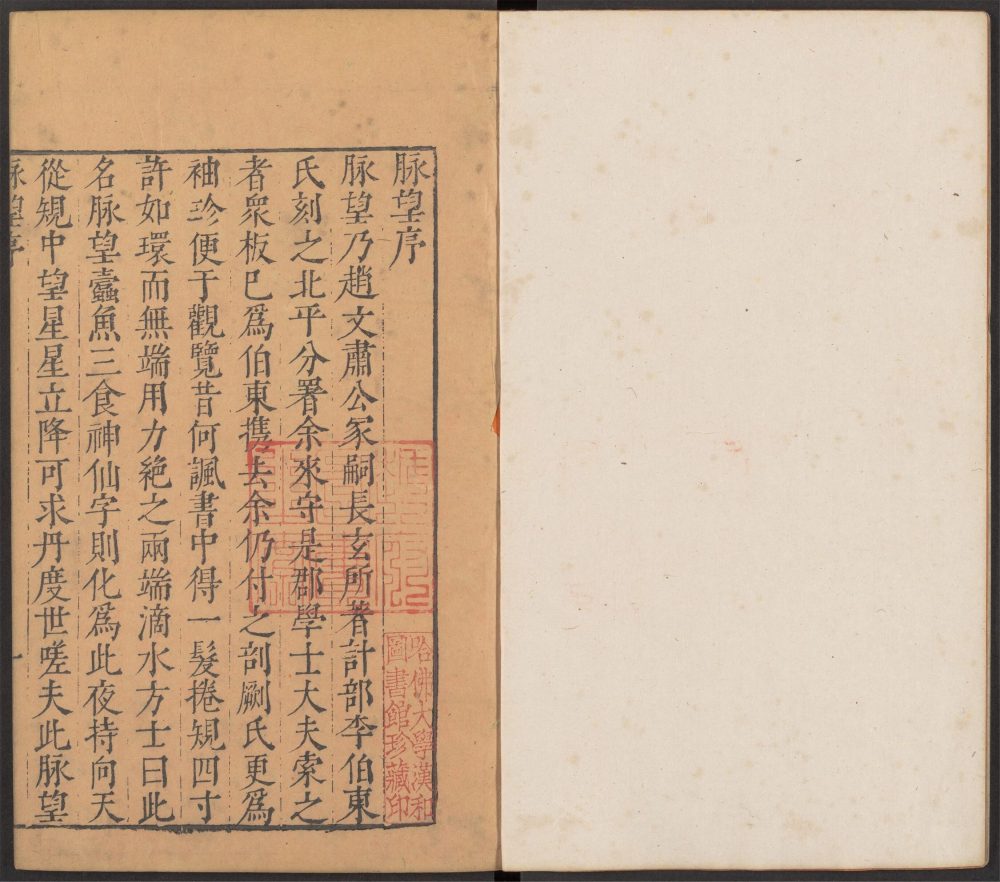 脉望序
脉望乃趙文肅公冢嗣長玄所著計部李伯東
氏刻之北平分署余來守是郡學士大夫索之
者衆板已爲伯東携去余仍付之剖劂氏更爲
袖珍便于觀覽昔何諷書中得一髮捲規四寸
許如環而無端用力絶之兩端滴水方士曰此
名脉望蠧魚三食神仙字則化爲此夜持向天
從規中望星星立降可求丹度世嗟夫此脉望
脉望序
一
哈佛大學漢和
圖書館珍藏印